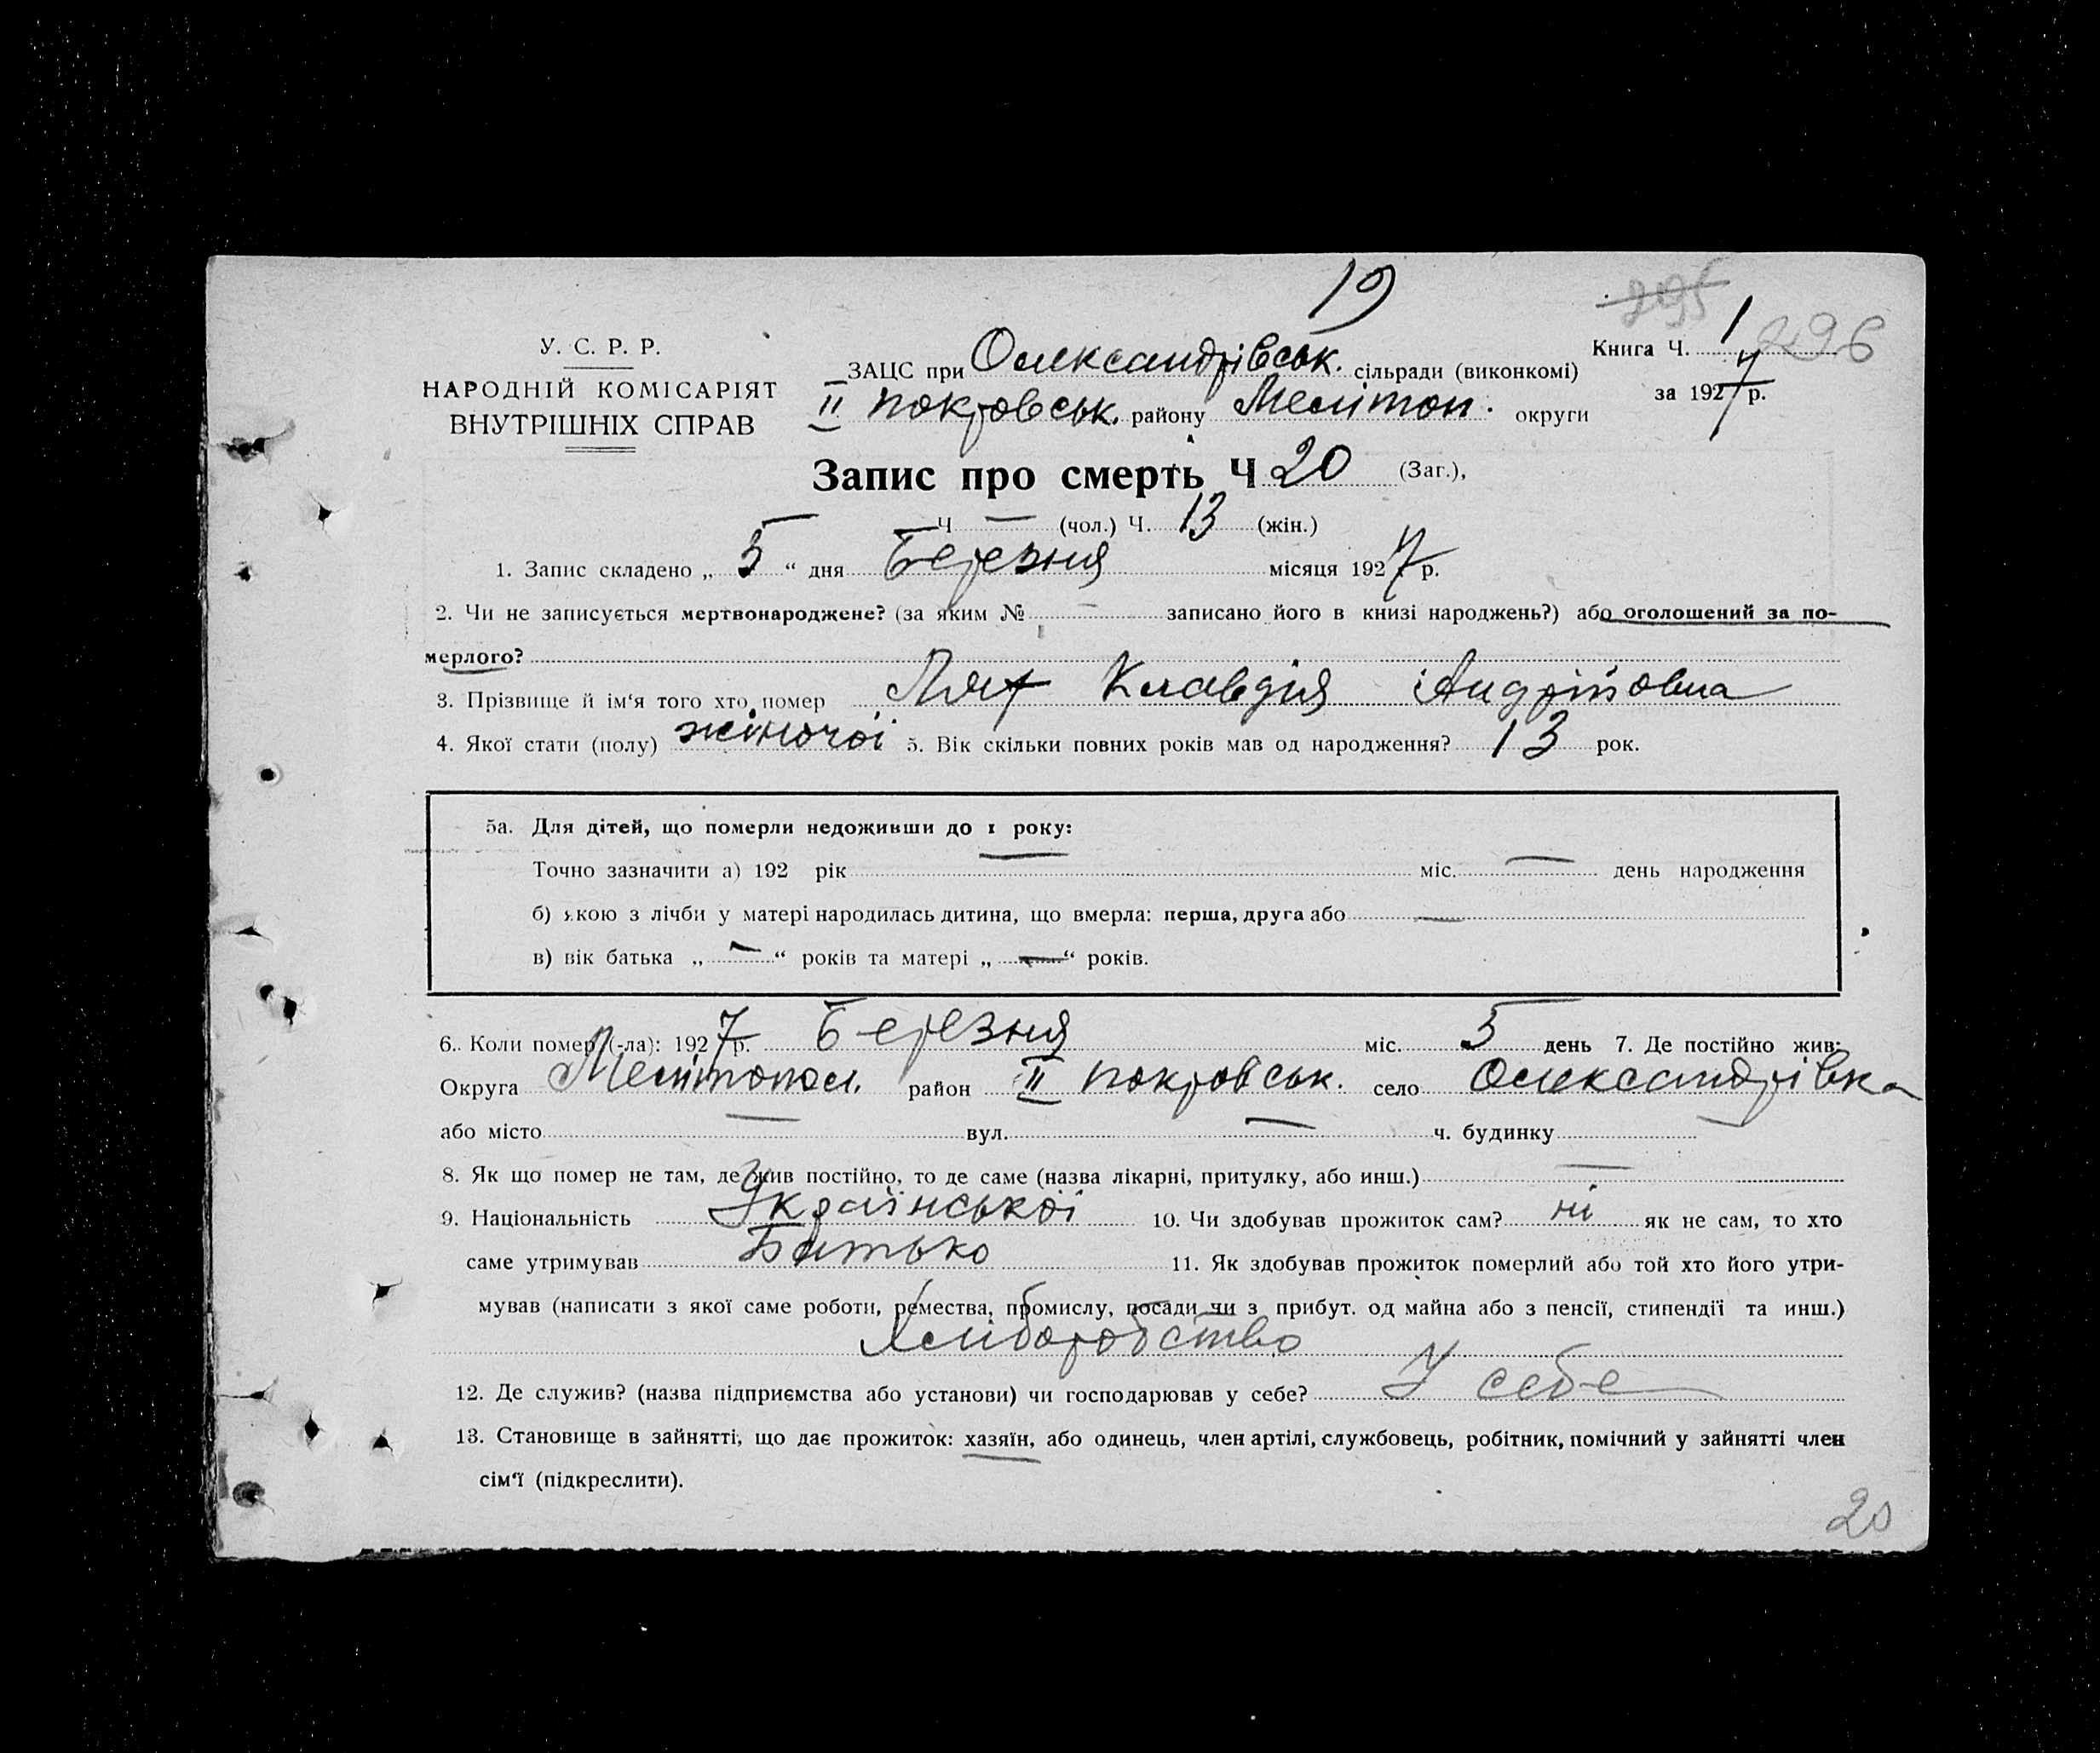 19
295
У. С. Р. Р.
НАРОДНІЙ КОМІСАРІЯТ
ВНУТРІШНІХ СПРАВ
ЗАЦС при Олександрівськ. сільради (виконкомі)
II Покровськ. району Мелітоп. округи
Книга Ч. 1 296
за 1927 р.
Запис про смерть Ч 20 (Заг.),
Ч — (чол.) Ч. 13 (жін.)
1. Запис складено „ 5 “ дня Березня місяця 1927 р.
2. Чи не записується мертвонароджене? (за яким № — записано його в книзі народжень?) або оголошений за по-
мерлого?
3. Прізвище й ім‘я того хто помер Лях Клавдія Андрійовна
4. Якої стати (полу) жіночої 5. Вік скільки повних років мав од народження? 13 рок.
5а. Для дітей, що померли недоживши до 1 року:
Точно зазначити а) 192 рік міс. — день народження
б) якою з лічби у матері народилась дитина, що вмерла: перша, друга або —
в) вік батька „ — “ років та матері „ — “ років.
6. Коли помер (-ла): 1927 р. Березня міс. 5 день 7. Де постійно жив:
Округа Мелітопол. район II Покровськ. село Олександрівка
або місто — вул. — ч. будинку —
8. Як що помер не там, де жив постійно, то де саме (назва лікарні, притулку, або инш.) —
9. Національність Української 10. Чи здобував прожиток сам? ні як не сам, то хто
саме утримував Батько 11. Як здобував прожиток померлий або той хто його утри-
мував (написати з якої саме роботи, ремества, промислу, посади чи з прибут. од майна або з пенсії, стипендії та инш.)
Хліборобство
12. Де служив? (назва підприємства або установи) чи господарював у себе? У себе
13. Становище в зайнятті, що дає прожиток: хазяїн, або одинець, член артілі, службовець, робітник, помічний у зайнятті член
сім‘ї (підкреслити).
20